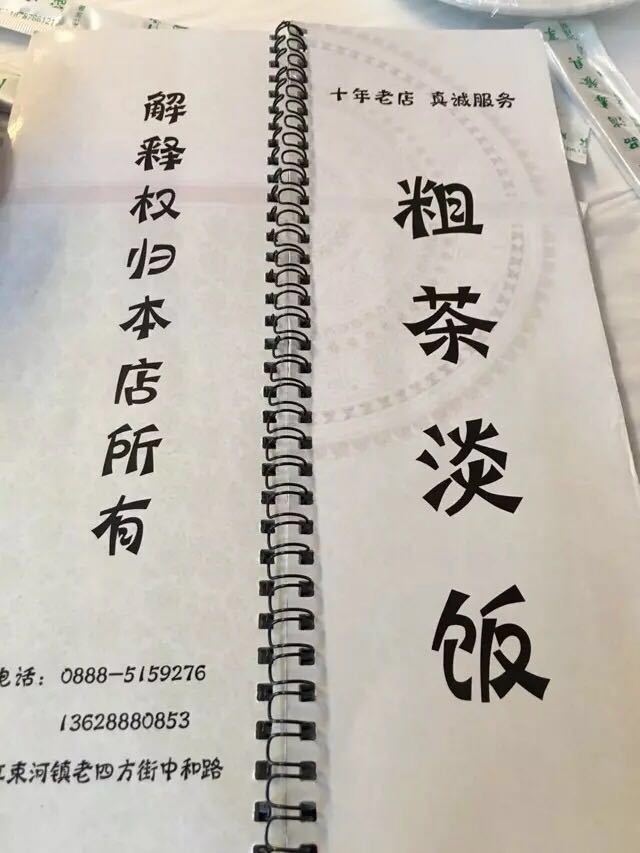 解释权归本店所有
电话：0888-5159276
13628880853
束河镇老四方街中和路
十年老店 真诚服务
粗茶淡饭